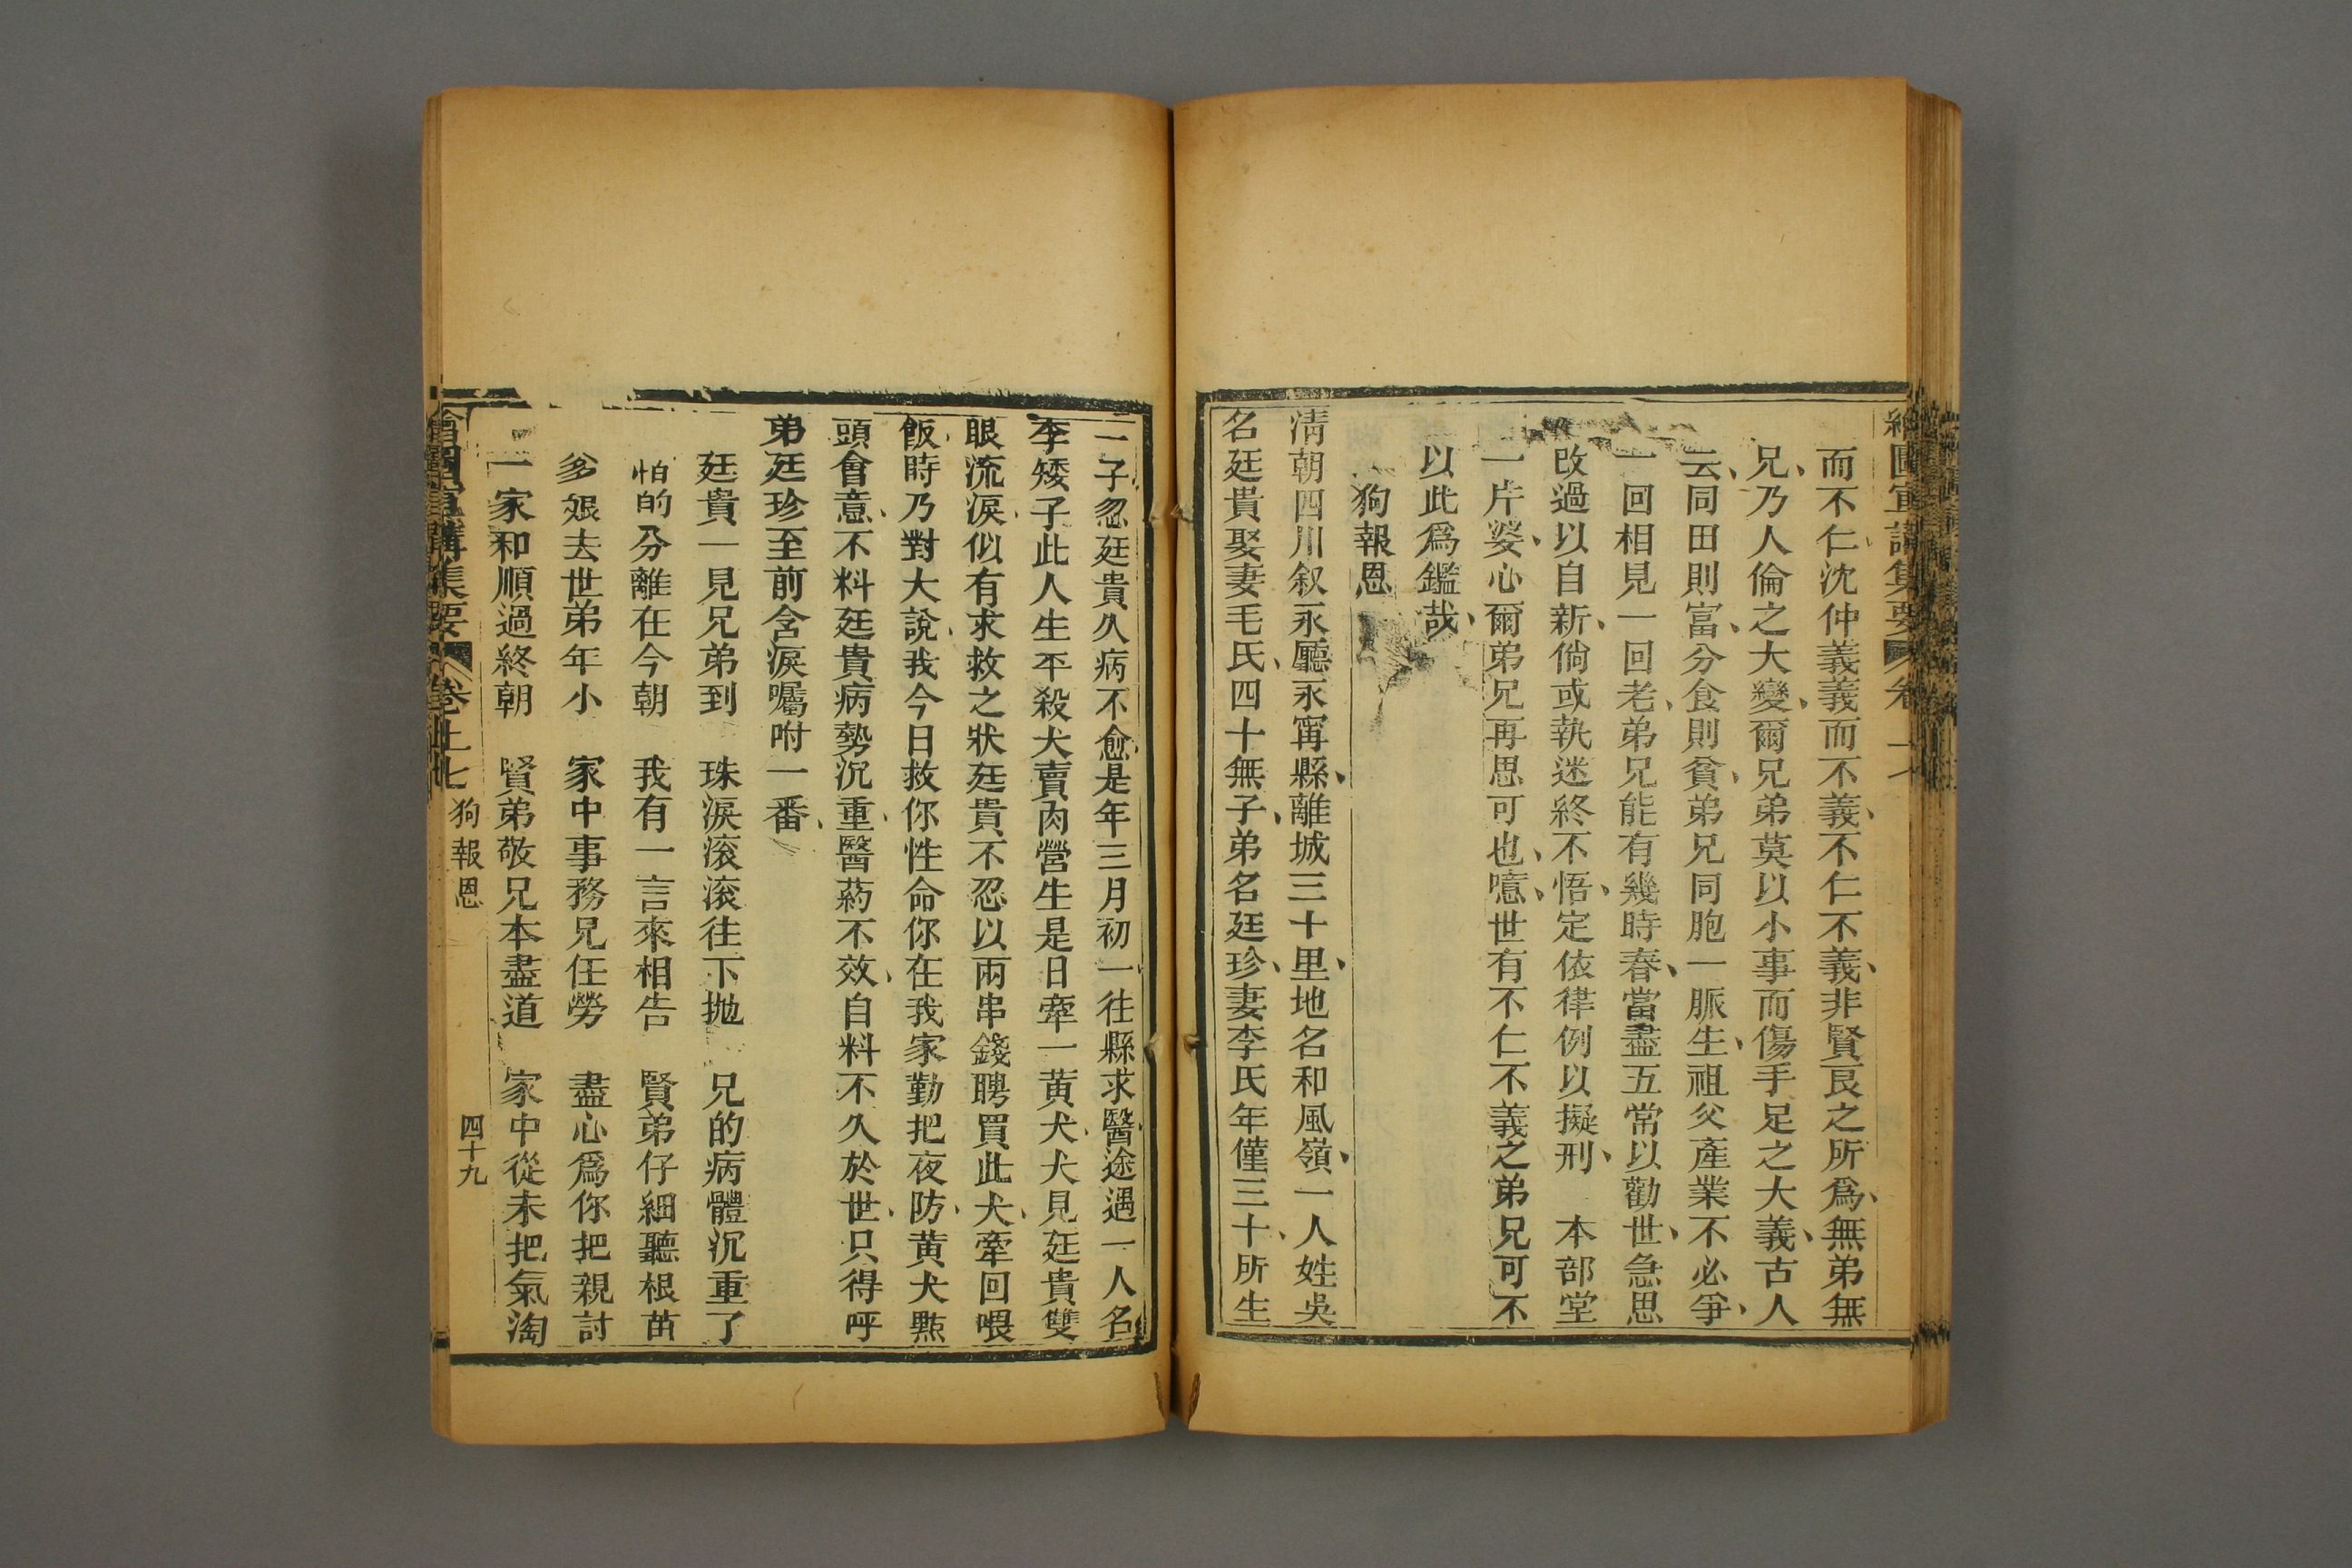 而不仁沈仲義義而不義、不仁不義、非賢良之所爲、無弟無
兄、乃人倫之大變、爾兄弟莫以小事而傷手足之大義、古人
云、同田則富、分食則貧、弟兄同胞一脈生、祖父產業不必爭、
一回相見一回老、弟兄能有幾時春、當盡五常以勸世、急思
改過以自新、倘或執迷終不悟、定依律例以擬刑、本部堂
一片婆心、爾弟兄再思可也、噫、世有不仁不義之弟兄可不
以此爲鑑哉、
狗報恩
淸朝四川叙永廳永寗縣、離城三十里、地名和風嶺、一人姓吳
名廷貴娶妻毛氏、四十無子、弟名廷珍、妻李氏年僅三十、所生
一子忽廷貴久病不愈、是年三月初一、往縣求醫、途遇一人名
李矮子此人生平殺犬賣肉營生是日牽一黄犬、犬見廷貴雙
眼流淚、似有求救之狀廷貴不忍以兩串錢聘買此犬、牽回喂
飯、時乃對犬說、我今日救你性命你在我家勤把夜防、黄犬㸃
頭會意、不料廷貴病勢沉重、醫葯不效、自料不久於世、只得呼
弟廷珍至前含淚囑咐一番、
廷貴一見兄弟到　珠淚滚滚往下抛　兄的病體沉重了
怕的分離在今朝　我有一言來相告　賢弟仔細聽根苗
爹娘去世弟年小　家中事務兄任勞　盡心爲你把親討
一家和順過終朝　賢弟敬兄本盡道　家中從未把氣淘
卷十七　狗報恩　四十九